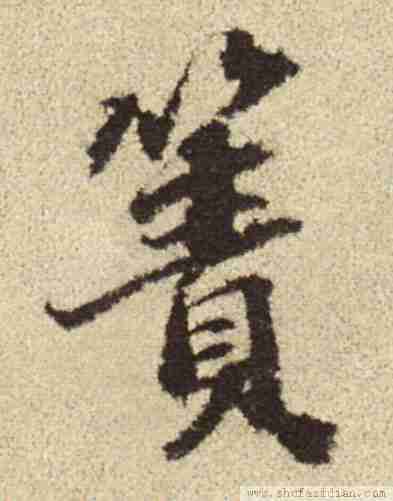 簀
www.shufazidian.com